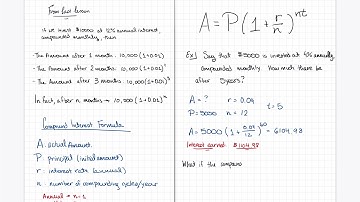 From last lesson
if we invest $10000 at 12% annual interest,
compounded monthly, then
- The Amount after 1 month: 10,000(1+0.01)
- The Amount after 2 months: 10,000(1+0.01)²
- The Amount after 3 months: 10,000(1+0.01)³
In fact, after n months → 10,000(1+0.01)ⁿ
Compound Interest Formula
A: actual Amount
P: principal (initial amount)
r: interest rate (annual)
n: number of compounding cycles/year
Annual → n=1
A = P(1 + r/n)^nt
Ex) Say that $5000 is invested at 4% annually,
compounded monthly. How much there be
after 5 years?
A = ? r = 0.04
P = 5000 n = 12 t = 5
A = 5000(1 + 0.04/12)^60 = 6104.98
Interest earned: $1104.98
What if the compoun